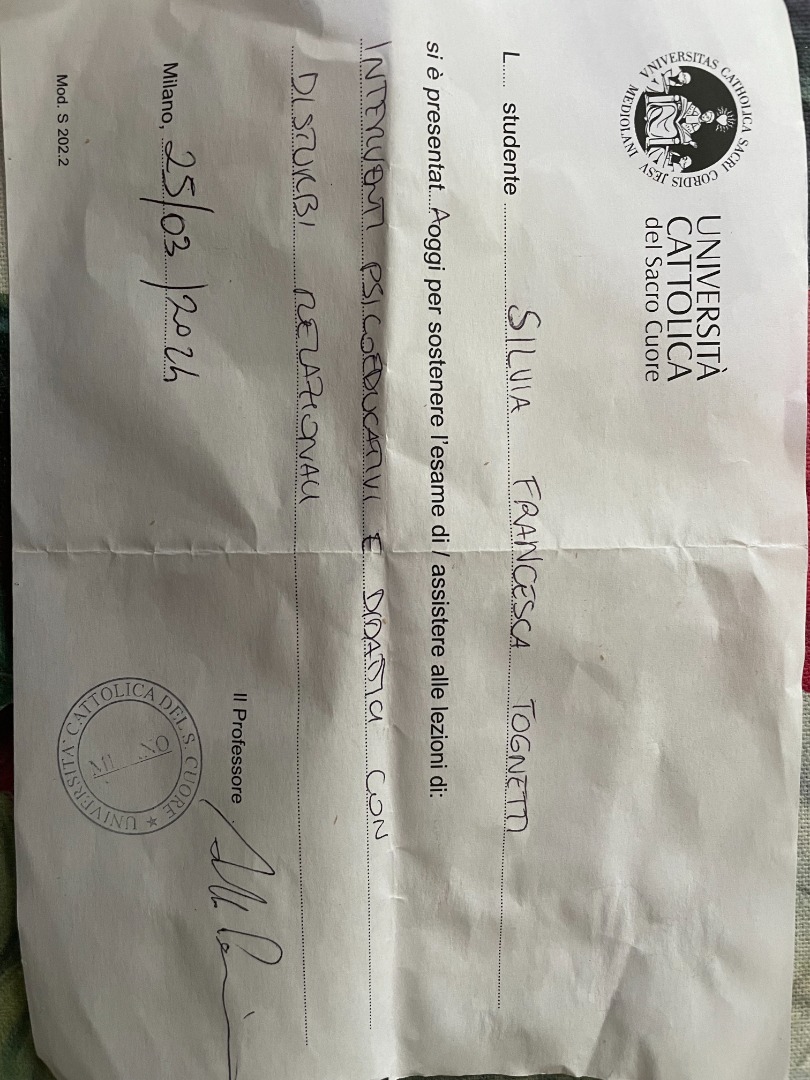 VNIVERSITAS CATHOLICA SACRI CORDIS JESV MEDIOLANI
UNIVERSITÀ
CATTOLICA
del Sacro Cuore
L..... studente SILVIA FRANCESCA TOGNETTI
si è presentat...A oggi per sostenere l'esame di / assistere alle lezioni di:
INTERVENTI PSICOEDUCATIVI E DIDATTICI CON
DISTURBI RELAZIONALI
Il Professore
Milano, 25/03/2024
UNIVERSITA' CATTOLICA DEL S. CUORE ★
MILANO
Mod. S 202.2